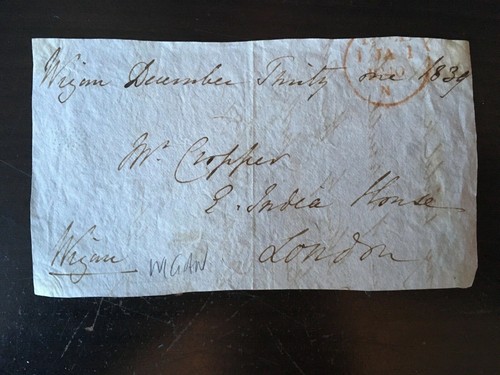 1 JA 1
N
Wigan December Thirty one 1839
Mr. Cropper
E. India House
London
Wigan
WIGAN